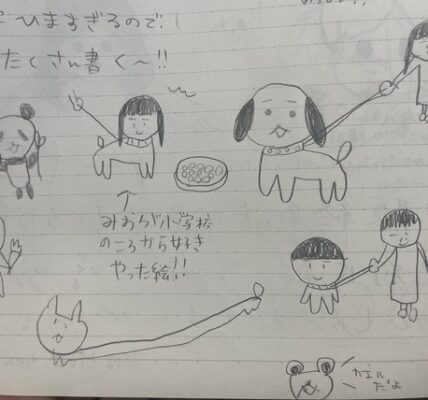 ひますぎるので!
たくさん書く〜!!
↑
みおちが小学校
のころから好き
やった絵!!
カエル
だよ